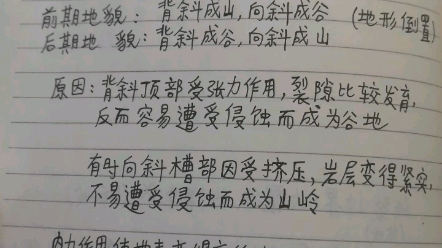 前期地貌: 背斜成山,向斜成谷 (地形倒置)
后期地 貌: 背斜成谷,向斜成山
原因: 背斜顶部受张力作用,裂隙比较发育,
反而容易遭受侵蚀而成为谷地
有时向斜槽部因受挤压,岩层变得紧实,
不易遭受侵蚀而成为山岭